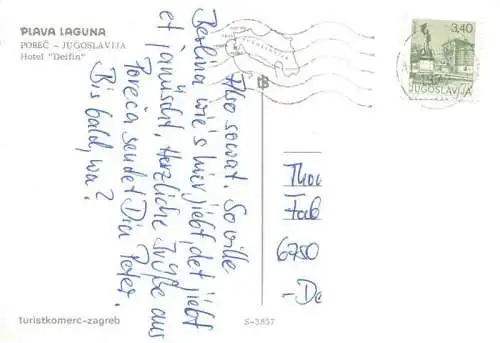 PLAVA LAGUNA
POREČ – JUGOSLAVIJA
Hotel "Delfin"
Also sowat. So ville
Berlina wie's hier jiebt, det jiebt
et janüscht. Herzliche Grüße aus
Poreča sendet Dir Peter.
Bis bald, wa?
3,40
JUGOSLAVIJA
Thom
Fab
6750
-De
turistkomerc-zagreb
S-3857